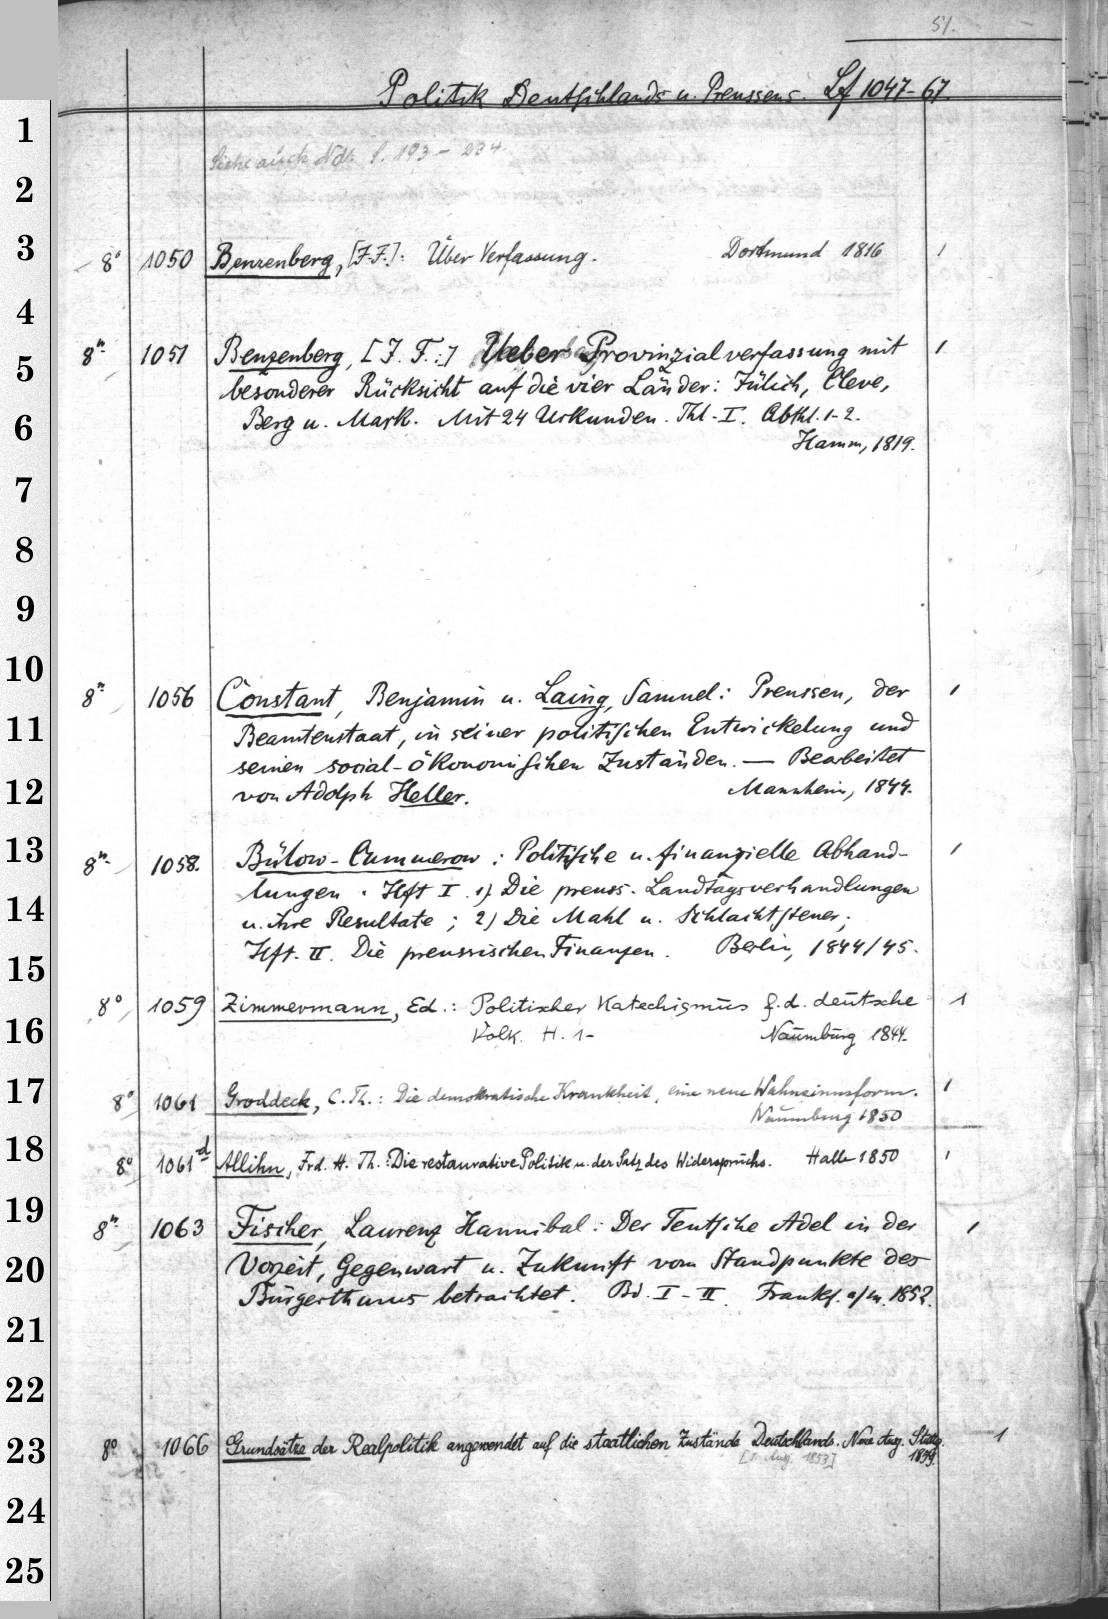 51.
Politik Deutschlands u. Preussens. Lf 1047-67.
1
Siehe auch Ndt. S. 193 - 234.
2
3 8° 1050 Benzenberg, [J.F.]: Über Verfassung. Dortmund 1816 1
4
8° 1051 Benzenberg, [J. F.:] Ueber Provinzialverfassung mit 1
5 besonderer Rücksicht auf die vier Länder: Jülich, Cleve,
6 Berg u. Mark. Mit 24 Urkunden. Thl. I. Abthl. 1-2.
Hamm, 1819.
7
8
9
10
8° 1056 Constant, Benjamin u. Laing, Samuel: Preussen, der 1
11 Beamtenstaat, in seiner politischen Entwickelung und
seinen social-ökonomischen Zuständen. — Bearbeitet
12 von Adolph Heller. Mannheim, 1844.
13 8° 1058. Bülow-Cummerow: Politische u. finanzielle Abhand- 1
lungen. Hft I. 1) Die preuss. Landtagsverhandlungen
14 u. ihre Resultate; 2) Die Mahl u. Schlachtsteuer;
15 Hft. II. Die preussischen Finanzen. Berlin, 1844/45.
8° 1059 Zimmermann, Ed.: Politischer Katechismus f. d. deutsche 1
16 Volk. H. 1- Naumburg 1844.
17 8° 1061 Groddeck, C. Th.: Die demokratische Krankheit, eine neue Wahnsinnsform. 1
Naumburg 1850
18 8° 1061d Allihn, Frd. H. Th.: Die restaurative Politik u. der Satz des Widerspruchs. Halle 1850 1
19 8° 1063 Fischer, Laurenz Hannibal: Der Teutsche Adel in der 1
20 Vorzeit, Gegenwart u. Zukunft vom Standpunkte des
Bürgerthums betrachtet. Bd. I - II. Frankf. a/m. 1852.
21
22
23 8° 1066 Grundsätze der Realpolitik angewendet auf die staatlichen Zustände Deutschlands. Neue Ausg. Stuttg. 1
[1. Ausg. 1853] 1859.
24
25